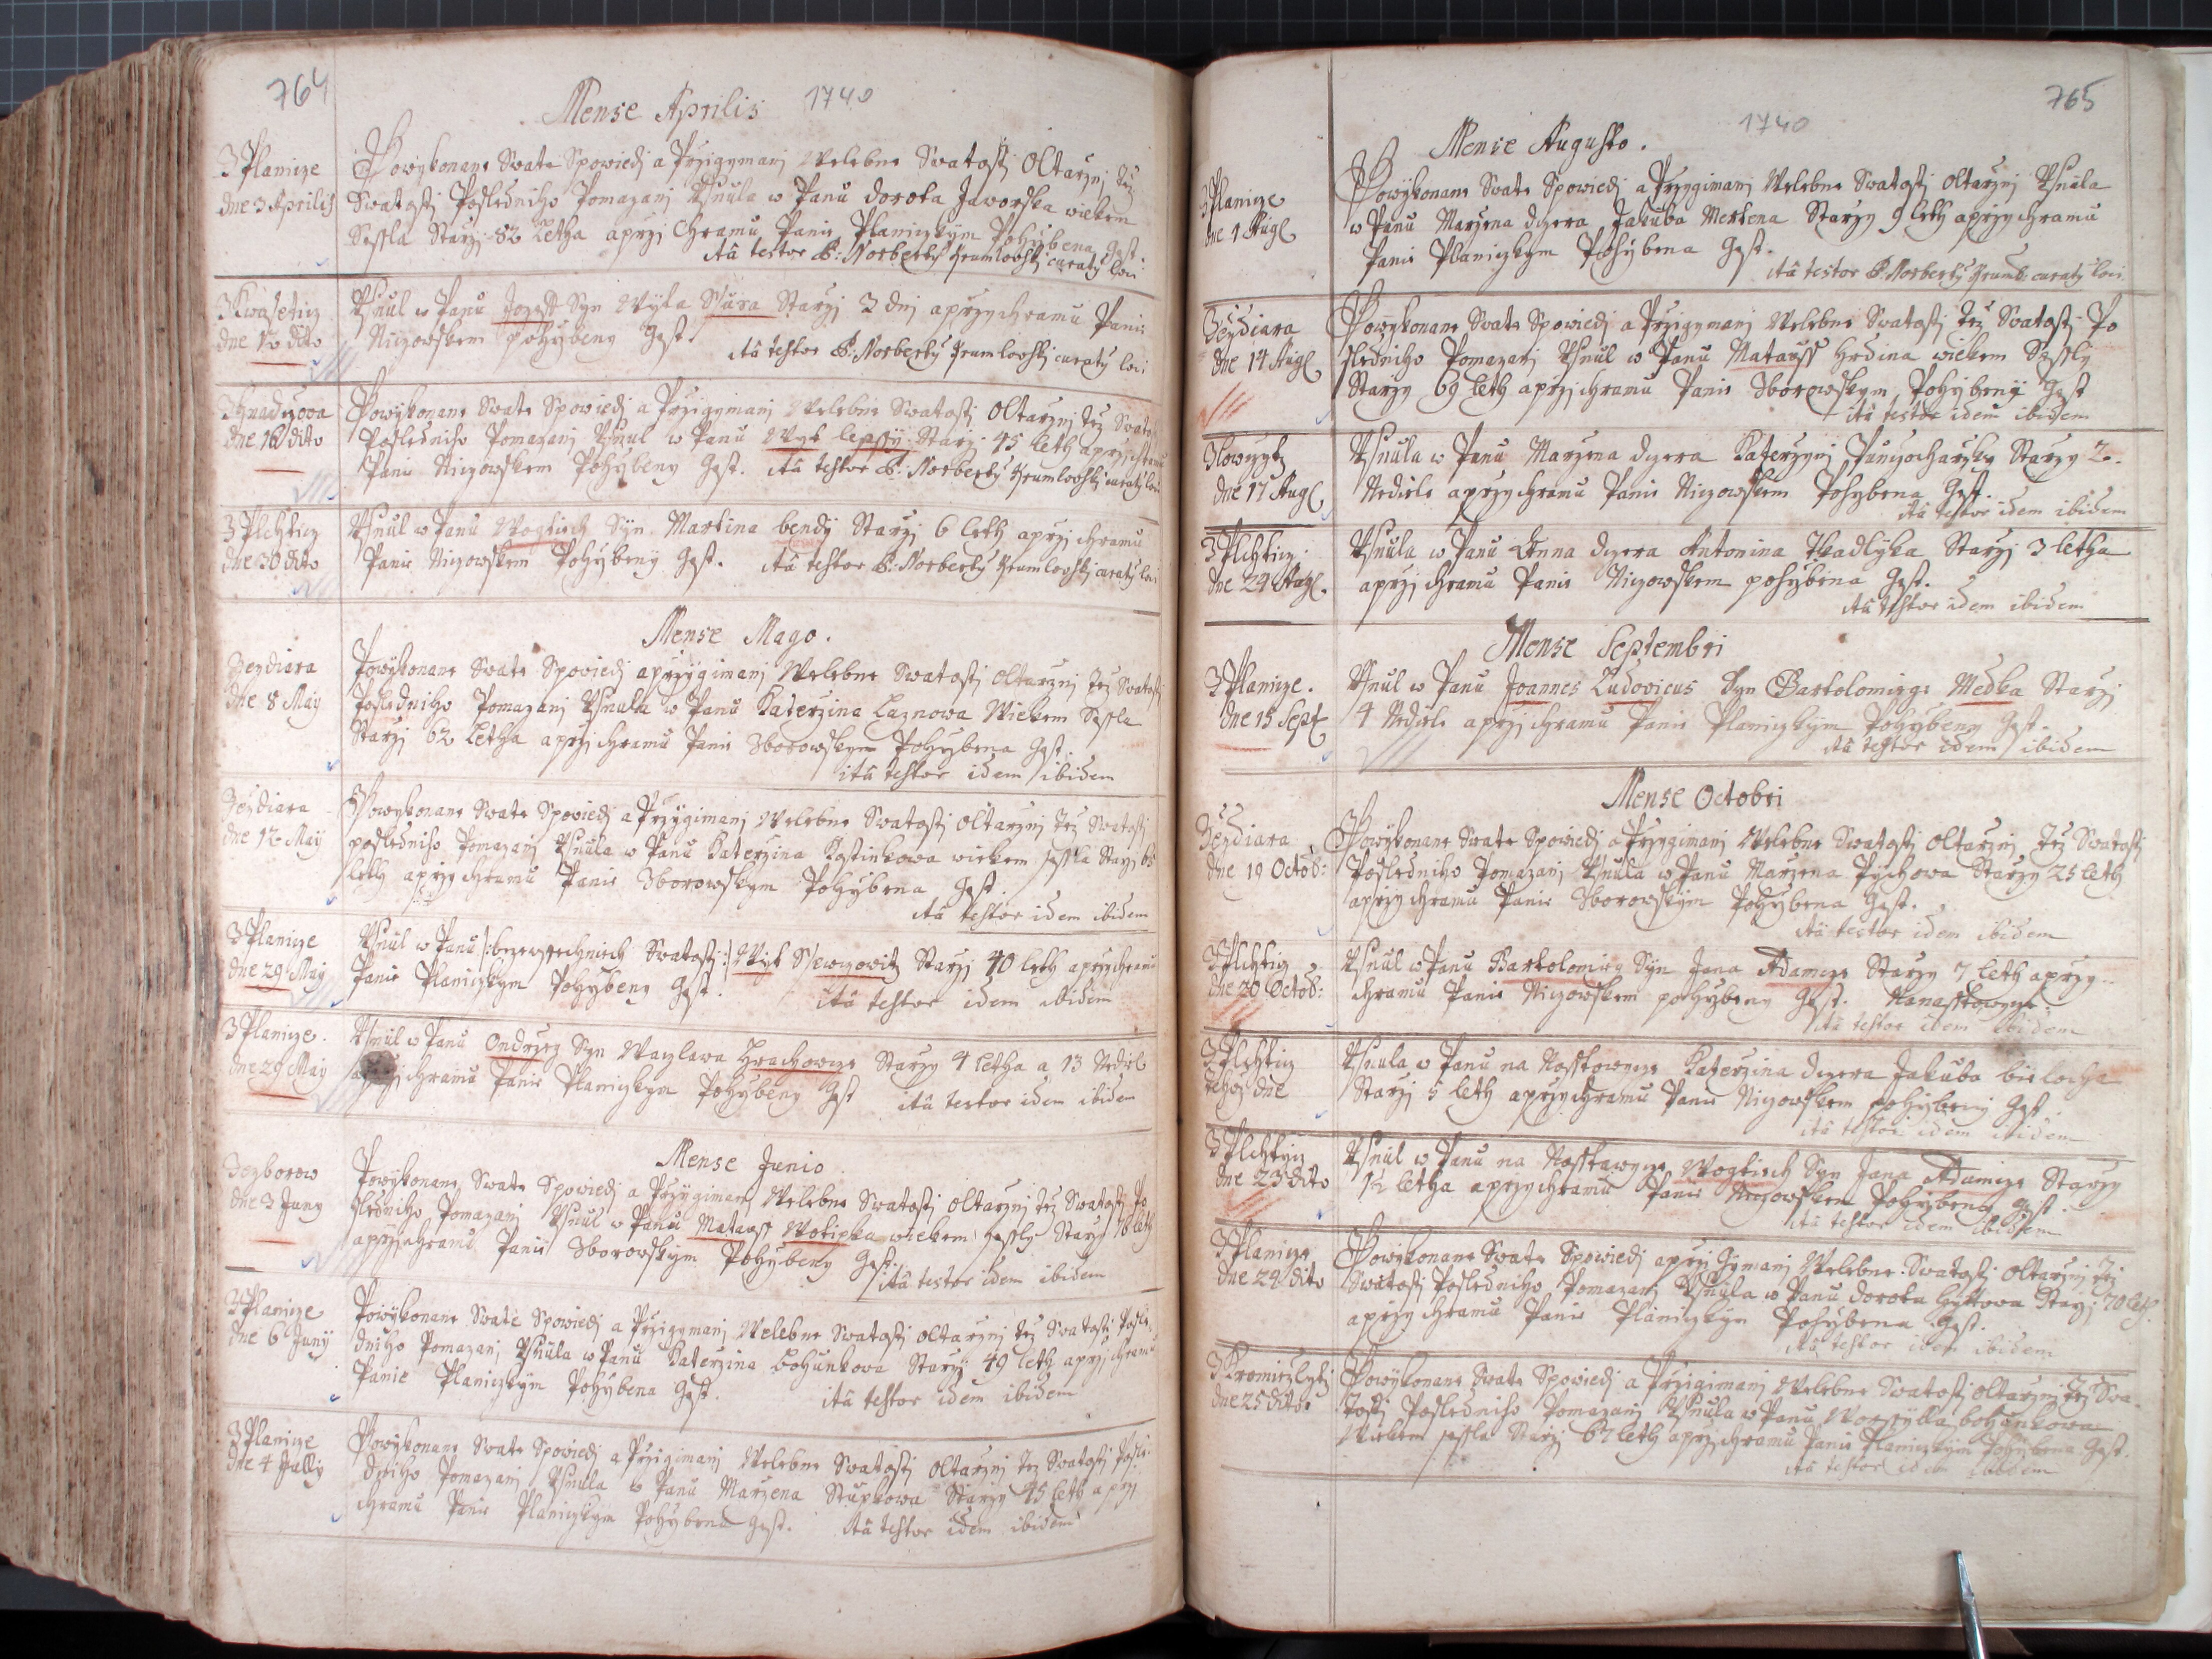 764
Mense Aprilis 1740
Z Planicze
dne 3 Aprilis
Powykonane Swate Spowiedj a Przigymanj Welebne Swatosti Oltarznj Tez
Swatosti Posledniho Pomazanj Usnula w Panu dorota Jaworska wiekem
Sessla Starzj 82 Letha aprzj Chramu Panie Planiczkym Pohrzbena Gest.
Ita testor P: Norberty Krumlovsky curaty loci
Z Kwaseticz
dne 12 dito
Usnul w Panu Jozeff Syn Wyta Ssura Starzj 3 dnj aprzy chramu Panie
Niczowskem pohrzbeny Gest.
Ita testor P: Norberty Krumlovsky curaty loci
Z Hnaczowa
dne 16 dito
Powykonane Swate Spowiedj a Przigymanj Welebne Swatosti Oltarznj tez Swatosti
Posledniho Pomazanj Usnul w Panu Wyt lepssy Starzj 45 leth aprzj chramu
Panie Niczowskem Pohrzbeny Gest. Ita testor P: Norberty Krumlovsky curaty loci
Z Plchticz
dne 30 dito
Usnul w Panu Wogtiech Syn Martina bendy Starzj 6 leth aprzj chramu
Panie Niczowskem Pohrzbeny Gest. Ita testor P: Norberty Krumlovsky curaty loci
Mense Mago.
Zezdiara
dne 8 May
Powykonane Swate Spowiedj aprzygimanj Welebne Swatosti oltarznj Tez Swatosti
Posledniho Pomazanj Usnula w Panu Katerzina Laznowa Wiekem Sessla
Starzj 62 Letha aprzj chramu Panie Zborowskym Pohrzbena Gest.
ita testor idem ibidem
Zezdiara
dne 12 May
Powykonane Swate Spowiedj a Przygimanj Welebne Swatosti oltarznj Tez Swatosti
posledniho Pomazanj Usnula w Panu Katerzina Kostinkowa wiekem sessla Starzj 65
leth aprzy chramu Panie Zborowskym Pohrzbena Gest.
ita testor idem ibidem
Z Planicze
dne 29 May
Usnul w Panu /:bezewssechniech Swatosti:/ Wyt Ssewczowitz Starzj 40 leth aprzy chramu
Panie Planiczkym Pohrzbeny Gest. ita testor idem ibidem
Z Planicze.
dne 29 May
Usnul w Panu Ondrzeg Syn Waczlawa Hrachowcze Starzy 4 letha a 13 Nediel
aprzj chramu Panie Planiczkym Pohrzbeny Gest ita testor idem ibidem
Mense Junio
Zezborow
dne 3 Juny
Powykonane Swate Spowiedj a Przygimanj Welebne Swatosti oltarznj Tez Swatosti Po
sledniho Pomazanj Usnul w Panu Matauss Wotipka wiekem sessly Starzj 70 leth
aprzj chramu Panie Zborowskym Pohrzbeny Gest.
ita testor idem ibidem
Z Planicze
dne 6 Juny
Powykonane Swate Spowiedj a Przigymanj Welebne Swatosti oltarznj tez Swatosti Posle
dniho Pomazanj Usnula w Panu Katerzina bohunkowa Starzj 49 leth aprzj chramu
Panie Planiczkym Pohrzbena Gest. ita testor idem ibidem
Z Planicze
dne 4 July
Powykonane Swate Spowiedj a Przigimanj Welebne Swatosti oltarznj tez Swatosti Posle
dniho Pomazanj Usnula w Panu Marzena Stupkowa Starzy 45 leth aprzj
chramu Panie Planiczkym Pohrzbena Gest. ita testor idem ibidem
765
1740
Mense Augusto.
Z Planicze
dne 1 Aug
Powykonane Swate Spowiedj a Przygimanj Welebne Swatosti oltarznj Usnula
w Panu Marzena dczera Jakuba Mertena Starzy 9 leth aprzy chramu
Panie Planiczkym Pohrzbena Gest.
ita testor P: Norberty Kruml: curaty loci
Zezdiara
dne 14 Aug
Powykonane Swate Spowiedj a Przigymanj Welebne Swatosti Tez Swatosti Po
sledniho Pomazanj Usnul w Panu Matauss Hrdina wiekem Sessly
Starzy 69 leth aprzj chramu Panie Zborowskym Pohrzbeny Gest
ita testor idem ibidem
dne 17 Aug
Usnula w Panu Marzena dczera Katerzyny Starzy 2
Nediele aprzy chramu Panie Niczowskem Pohrzbena Gest.
ita testor idem ibidem
Z Plchticz.
dne 24 Aug.
Usnula w Panu Anna dczera Antonina Tkadlyka Starzj 3 letha
aprzj chramu Panie Niczowskem pohrzbena Gest.
ita testor idem ibidem
Mense Septembri
Z Planicze.
dne 15 Sept
Usnul w Panu Joannes Ludovicus Syn Bartolomiege Medka Starzj
4 Nediele aprzj chramu Panie Planiczkym Pohrzbeny Gest.
ita testor idem ibidem
Mense Octobri
Zezdiara
dne 19 Octob:
Powykonane Swate Spowiedj a Przygimanj Welebne Swatosti oltarznj Tez Swatosti
Posledniho Pomazanj Usnula w Panu Marzena Pychowa Starzy 25 leth
aprzy chramu Panie Zborowskym Pohrzbena Gest.
ita testor idem ibidem
Z Plchticz
dne 20 Octob:
Usnul w Panu Bartolomieg Syn Jana Adamcze Starzy 7 leth aprzy
chramu Panie Niczowskem pohrzbeny Gest. Nanasstowycze
ita testor idem ibidem
Z Plchticz
tehoz dne
Usnula w Panu na Nesstowycze Katerzina dczera Jakuba bielocha
Starzj 5 leth aprzy chramu Panie Niczowskem pohrzbeny Gest
ita testor idem ibidem
Z Plchticz
dne 23 dito
Usnul w Panu na Nesstowycze Wogtiech Syn Jana Adamcze Starzy
1½ letha aprzy chramu Panie Niczowskem Pohrzbeny Gest.
ita testor idem ibidem
Z Planicze
dne 24 dito
Powykonane Swate Spowiedj aprzj Gymanj Welebne Swatosti Oltarznj Tez
Swatosti Posledniho Pomazanj Usnula w Panu dorota hyttowa Starzj 70 leth
aprzy chramu Panie Planiczkym Pohrzbena Gest.
ita testor idem ibidem
dne 25 dito
Powykonane Swate Spowiedj a Przigimanj Welebne Swatosti oltarznj Tez Swa
tosti Posledniho Pomazanj Usnula w Panu Worssylla bohunkowa
Wiekem sessla Starzj 67 leth aprzj chramu Panie Planiczkym Pohrzbena Gest.
ita testor idem ibidem